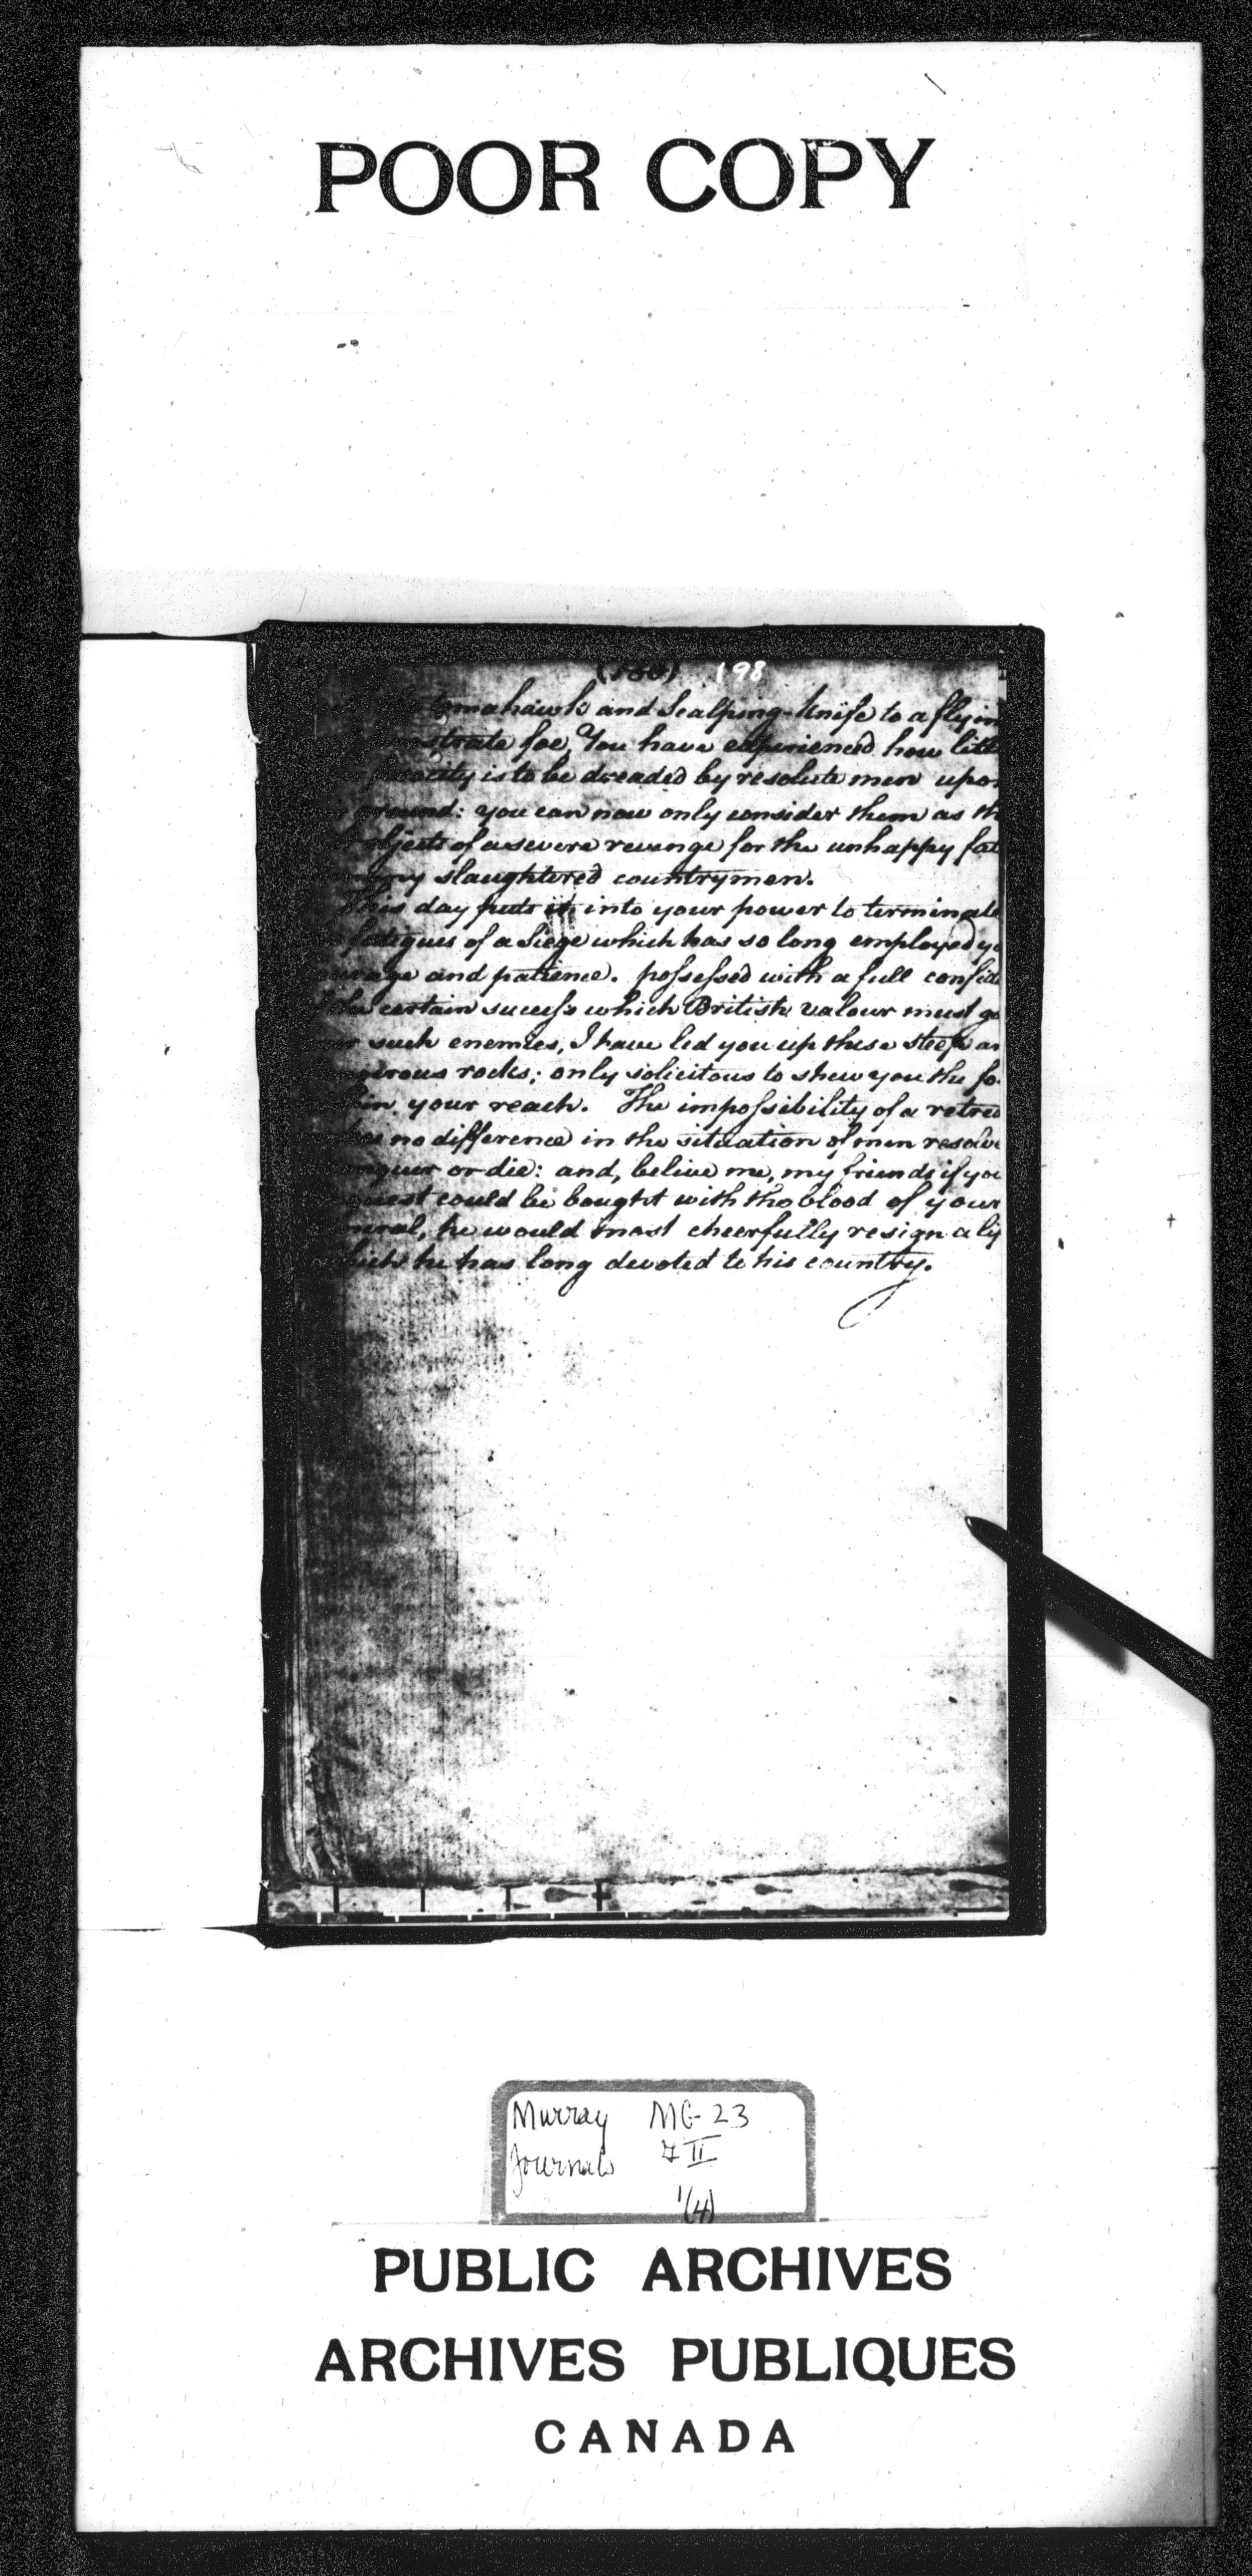 POOR COPY
198
tomahawk and Scalping-knife to a flyin
foe, You have experienced how litt
is to be dreaded by resolute men upon
ground: you can now only consider them as th
objects of a severe revenge for the unhappy fat
slaughtered countrymen.
This day puts it into your power to terminate
fatigues of a Siege which has so long employed yo
and patience. possessed with a full confid
certain success which British valour must ga
such enemies, I have led you up these steep an
rocks; only solicitous to shew you the fo
your reach. The impossibility of a retrea
no difference in the situation of men resolve
or die: and, belive me, my friends if you
could be bought with the blood of your
he would most cheerfully resign a lif
he has long devoted to his country.
Murray MG 23
Journals
1(4)
PUBLIC ARCHIVES
ARCHIVES PUBLIQUES
CANADA